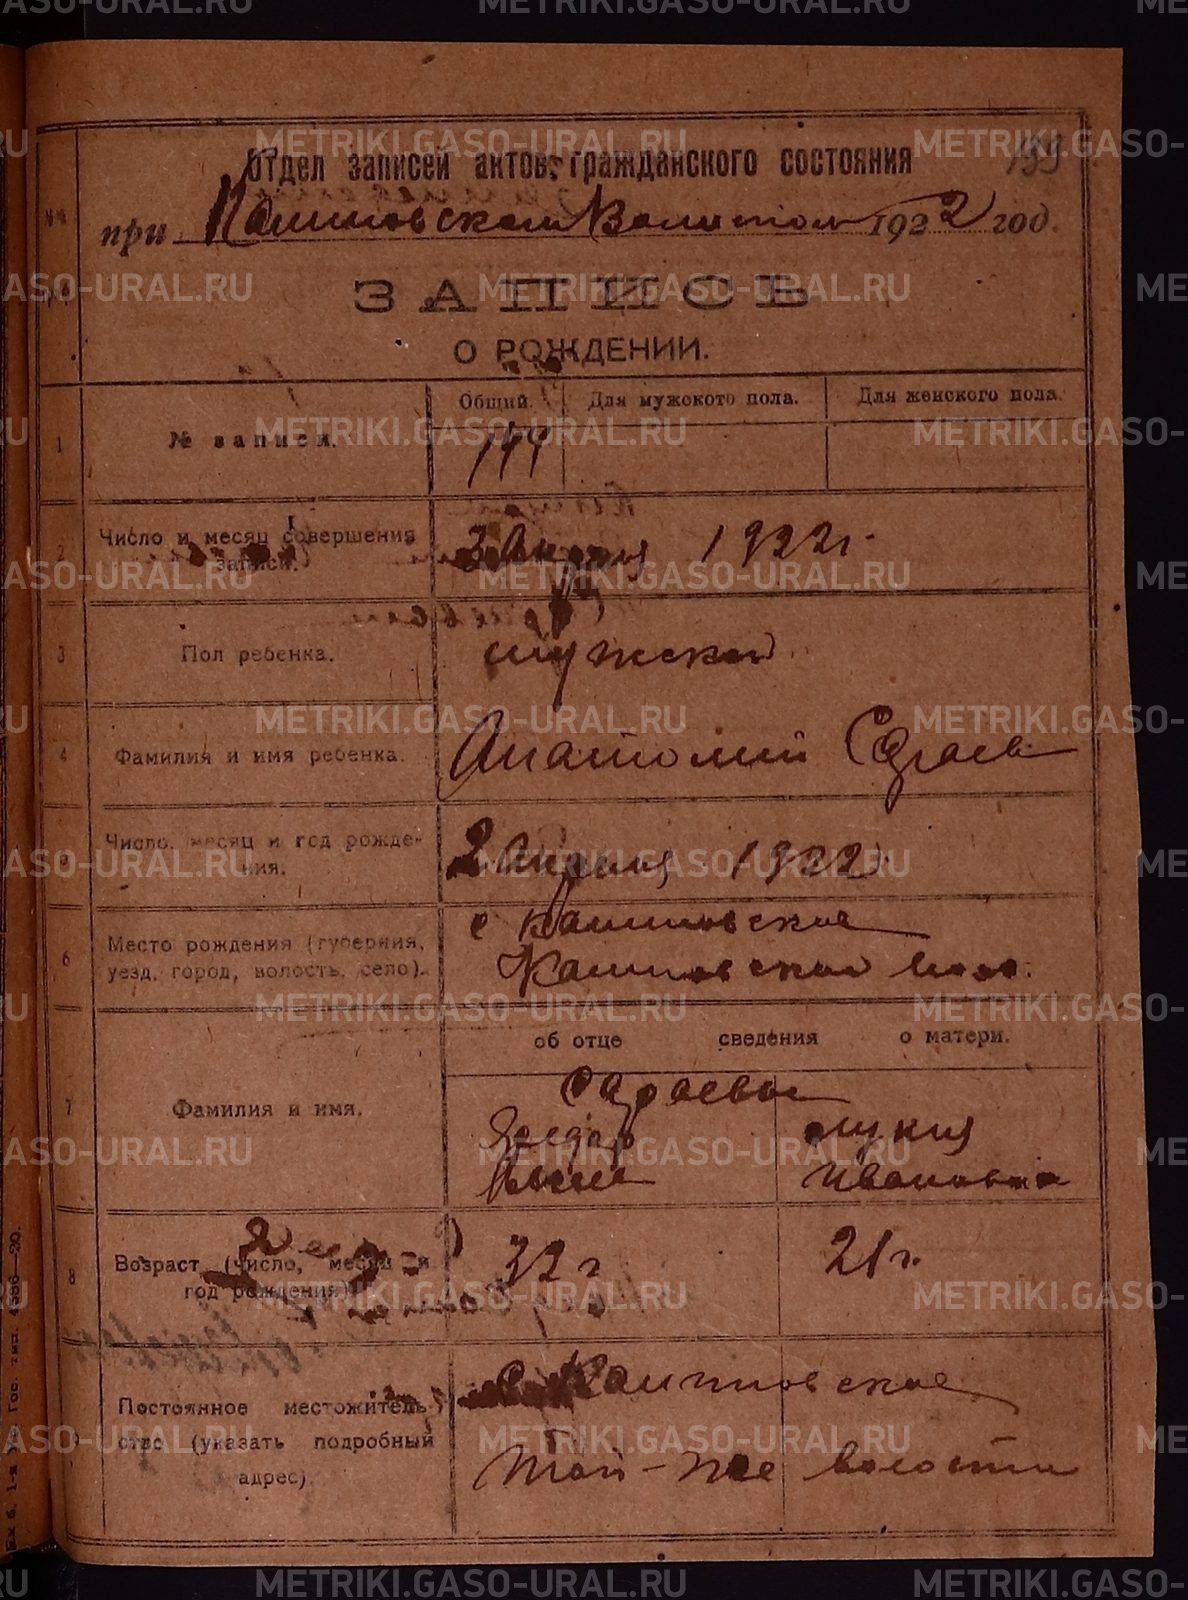 METRIKI.GASO-URAL.RU
199
Отдел записей актов гражданского состояния
при Калиновском Волостном 1922 год.
ЗАПИСЬ
О РОЖДЕНИИ.
Общий. Для мужского пола. Для женского пола.
1 № записи. 144
2 Число и месяц совершения записи. 3 Апреля 1922 г.
3 Пол ребенка. мужской
4 Фамилия и имя ребенка. Анатолий Сараев
5 Число, месяц и год рождения. 2 Апреля 1922
6 Место рождения (губерния, уезд, город, волость, село). с Калиновское
Калиновской воло.
об отце сведения о матери.
7 Фамилия и имя. Сараевы
Федор Лукия
Ивановна
8 Возраст (число, месяц и год рождения) 32 г 21 г.
9 Постоянное местожительство (указать подробный адрес) с Калиновское
той-же волости
Гос. тип. 4586—20.